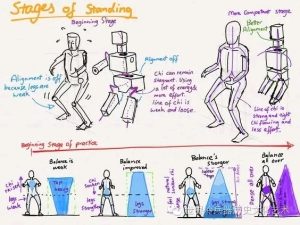 Stages of Standing
Beginning Stage
More Competent stage
Better
Alignment
Alignment off
Alignment is off
because legs are
weak
Chi can remain
stagnant. Using
a lot of energy &
more effort.
line of chi is
weak and loose.
Line of chi is
strong and tight
Chi flowing and
less effort.
Beginning Stage of practice
Balance is
weak
Balance
improved
Balance's
stronger
Balance
all over
Top
heavy
legs
weak
legs
stronger
legs stronger